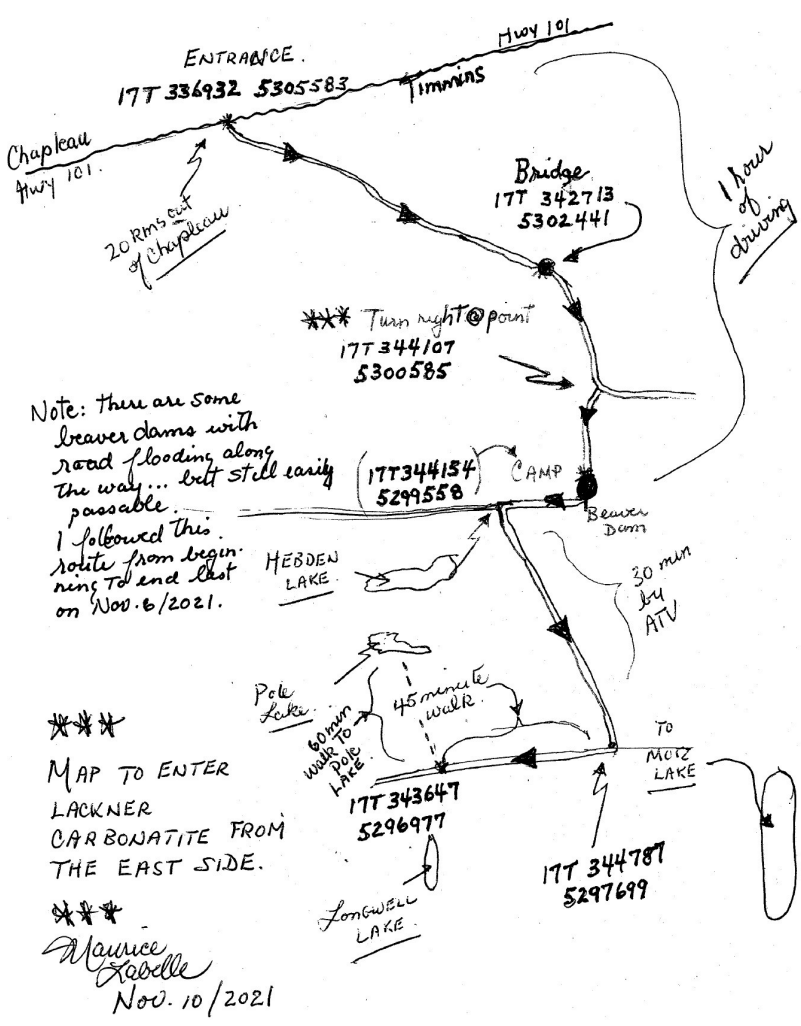 Hwy 101
ENTRANCE.
17T 336932 5305583
Timmins
Chapleau
Hwy 101.
20 Kms out
of Chapleau
Bridge
17T 342713
5302441
1 hour
of
driving
*** Turn right @ point
17T 344107
5300585
Note: there are some
beaver dams with
road flooding along
the way... but still easily
passable.
I followed this
route from begin-
ning to end last
on Nov. 6/2021.
(17T344154
5299558)
CAMP
Beaver
Dam
HEBDEN
LAKE.
30 min
by
ATV
Pole
Lake.
45 minute
walk.
60 min
walk to
Pole
LAKE.
TO
LAKE
17T 343647
5296977
17T 344787
5297699
LONGWELL
LAKE.
***
MAP TO ENTER
LACKNER
CARBONATITE FROM
THE EAST SIDE.
***
Maurice
Labelle
Nov. 10/2021